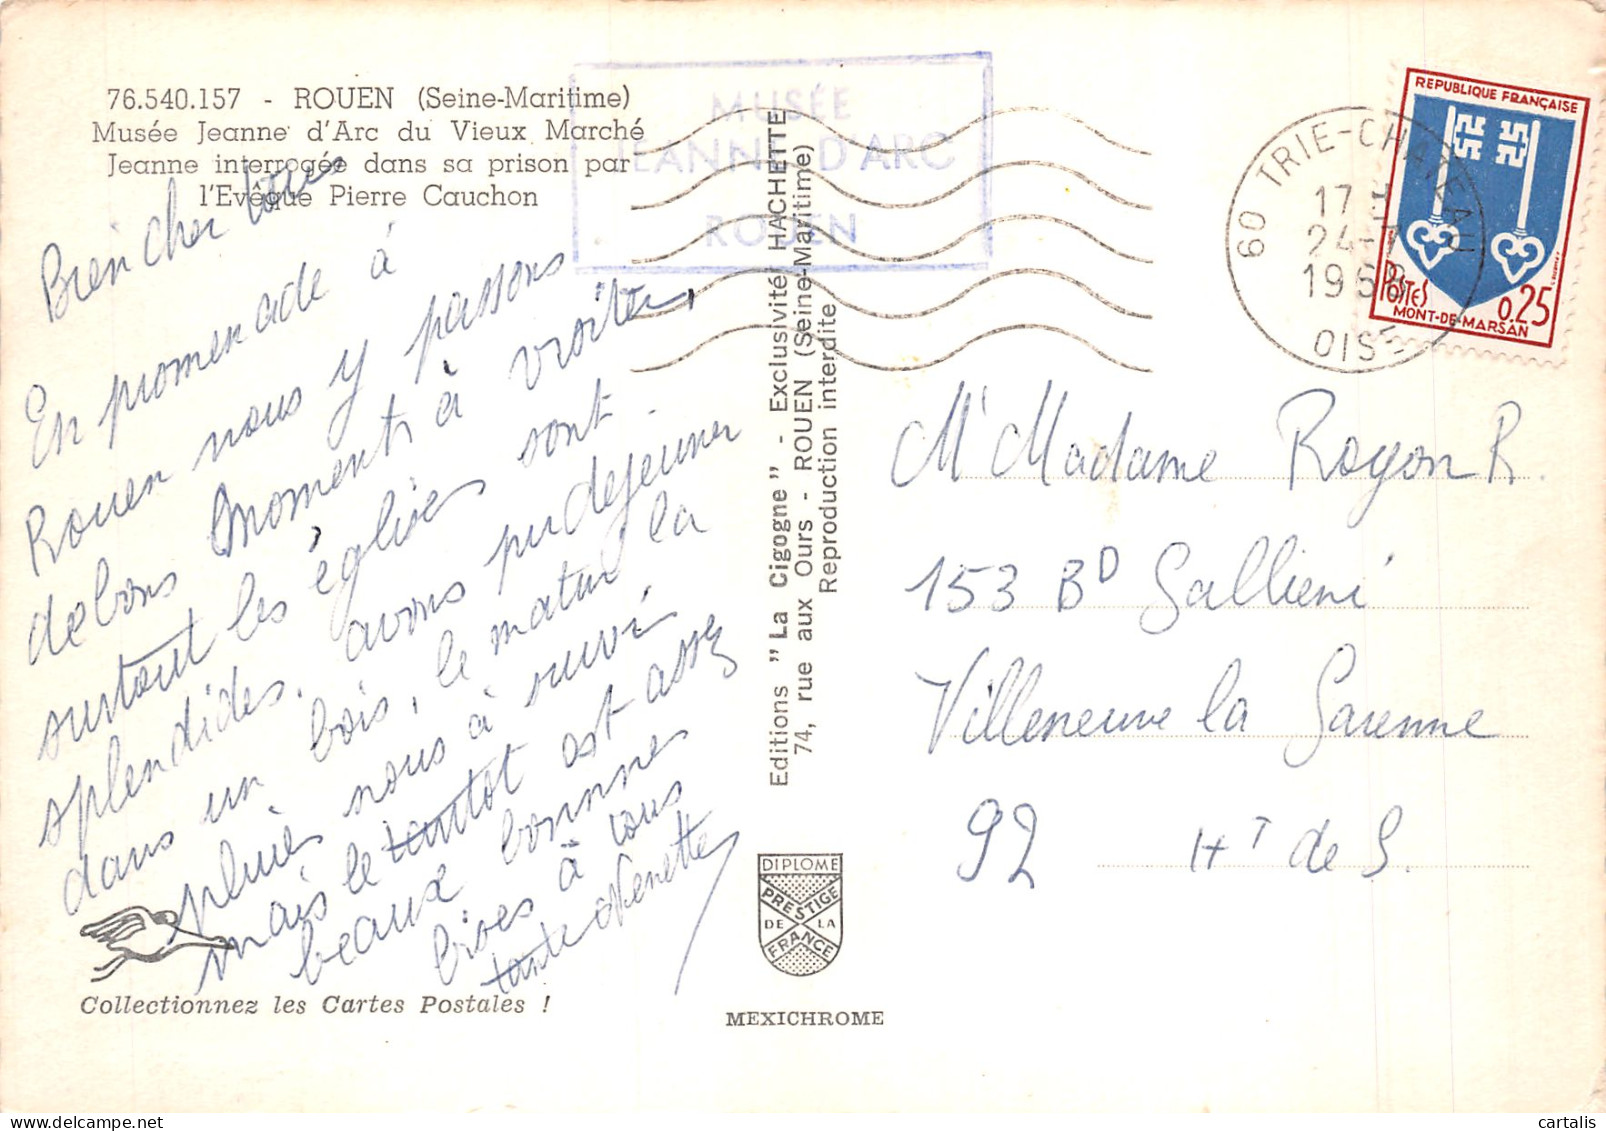 76.540.157 - ROUEN (Seine-Maritime)
Musée Jeanne d'Arc du Vieux Marché
Jeanne interrogée dans sa prison par
l'Evêque Pierre Cauchon
MUSÉE
JEANNE D'ARC
ROUEN
REPUBLIQUE FRANÇAISE
POSTES
0,25
MONT-DE-MARSAN
60 TRIE-CHATEAU
17 H
24-7
1968
OISE
Bien cher tous
En promenade à
Rouen nous y passons
de bons moments à visiter,
surtout les églises sont
splendides. avons pu dejeuner
dans un bois, le matin la
pluie nous à suivi
mais le tantot est assez
beaux bonnes
bises à tous
tante Nenette
Editions "La Cigogne" - Exclusivité HACHETTE
74, rue aux Ours - ROUEN (Seine-Maritime)
Reproduction interdite
Mr Madame Royon R.
153 BD Gallieni
Villeneuve la Garenne
92 HT de S.
DIPLOME
PRESTIGE
DE LA
FRANCE
Collectionnez les Cartes Postales !
MEXICHROME
cartalis